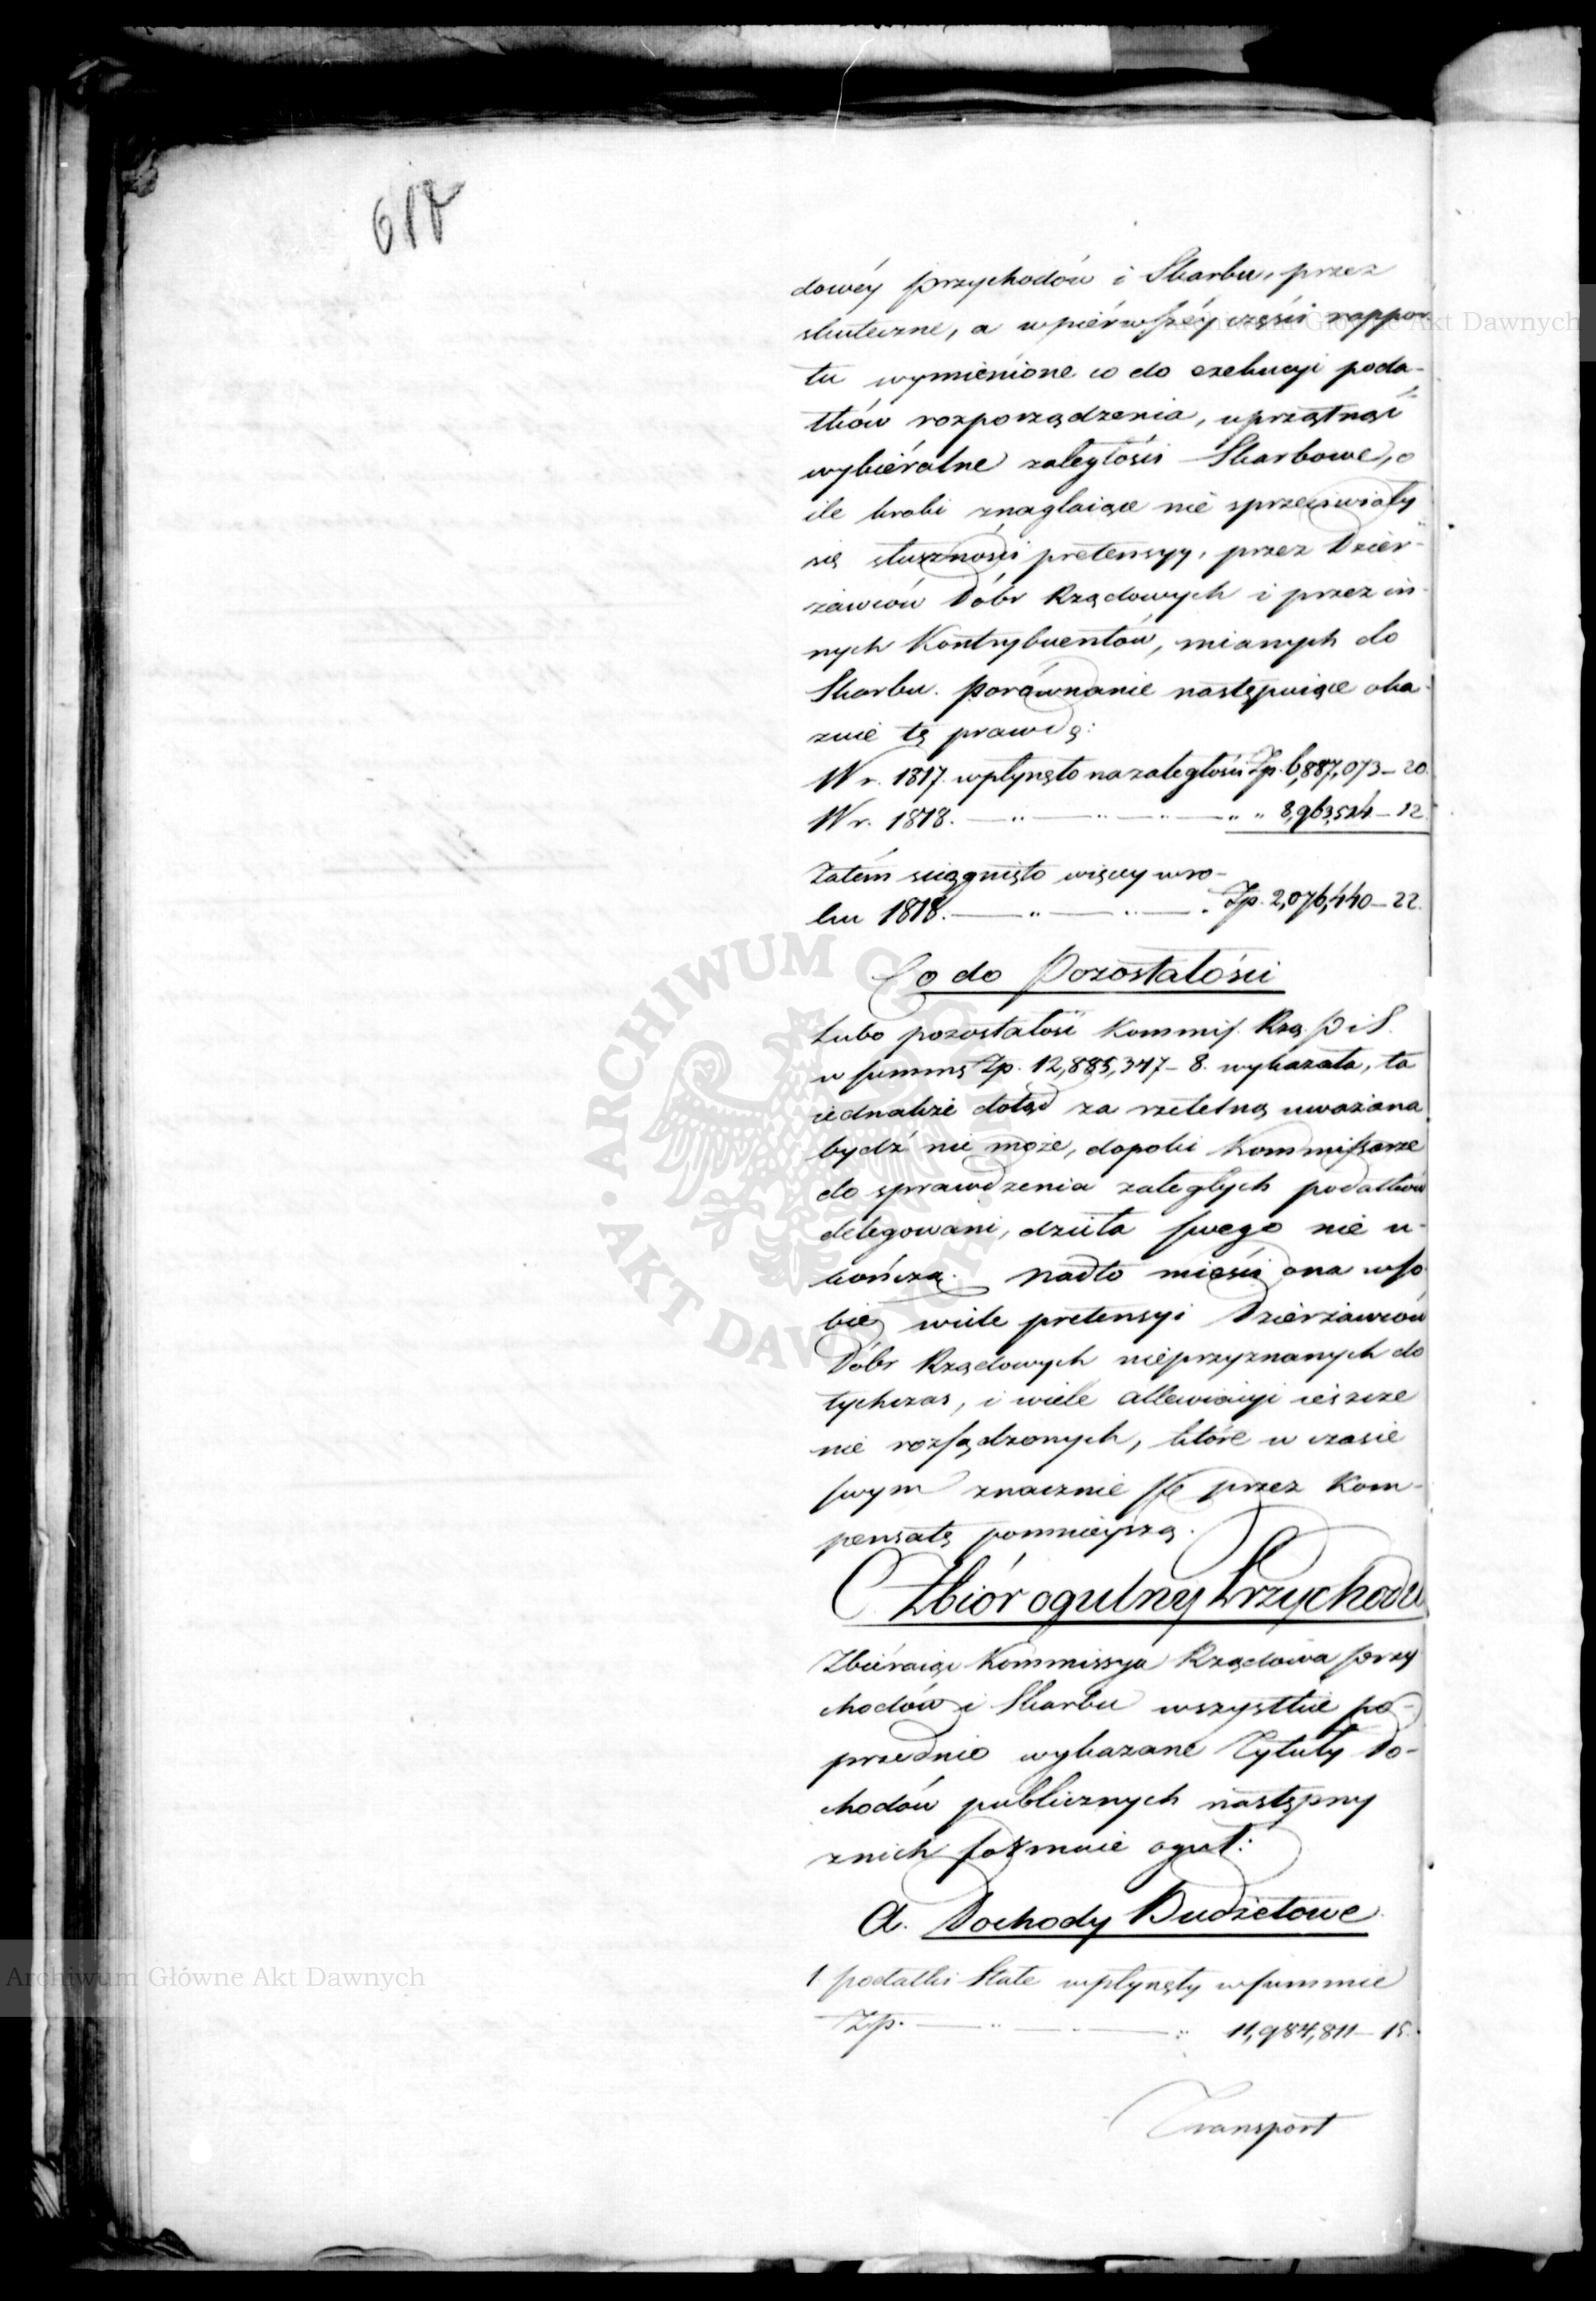 dowéy przychodów i Skarbu, przez
skuteczne, a w piérwszéy części rappor
tu wymienióne co do exekucyi poda-
tków rozporządzenia, uprzątnąć
wybiéralne zaległości Skarbowe, o
ile kroki znaglaiące nie sprzeciwiały
się słuszności pretensyy, przez Dzier-
żawców Dóbr Rządowych i przez in-
nych Kontrybuentów, mianych do
Skarbu. Porównanie następuiące oka-
zuie tę prawdę:
W r. 1817. wpłynęło na zaległości Zp. 6,887,073–20.
W r. 1818. — „ — „ — „ — „ „ 8,963,514–12.
Zatém ściągnięto więcey w ro-
ku 1818. — „ — „ — . Zp. 2,076,440–22.
Co do Pozostałości
Lubo pozostałość Kommiss. Rzą. P. i S.
w summę Zp. 12,885,347–8. wykazała, ta
iednakże dotąd za rzetelną uważana
bydź nie może, dopóki Kommissarze
do sprawdzenia zaległych podatków
delegowani, dzieła swego nie u-
kończą. Nadto mieści ona w so
bie wiele pretensyi Dzierżawców
Dóbr Rządowych nieprzyznanych do
tychczas, i wiele allewiacyi ieszcze
nie rozsądzonych, które w czasie
swym znacznie Ją przez Kom-
pensatę pomnieyszą.
Zbiór ogulny Przychodu
Zbiéraiąc Kommissya Rządowa Przy
chodów i Skarbu wszystkie po-
przednio wykazane Tytuły Do-
chodów publicznych następny
z nich formuie oguł:
A. Dochody Budżetowe.
1 podatki Stałe wpłynęły w summie
Zp. — „ — „ — „ 11,984,811–15.
Transport
Archiwum Główne Akt Dawnych
Archiwum Główne Akt Dawnych
ARCHIWUM GŁÓWNE AKT DAWNYCH